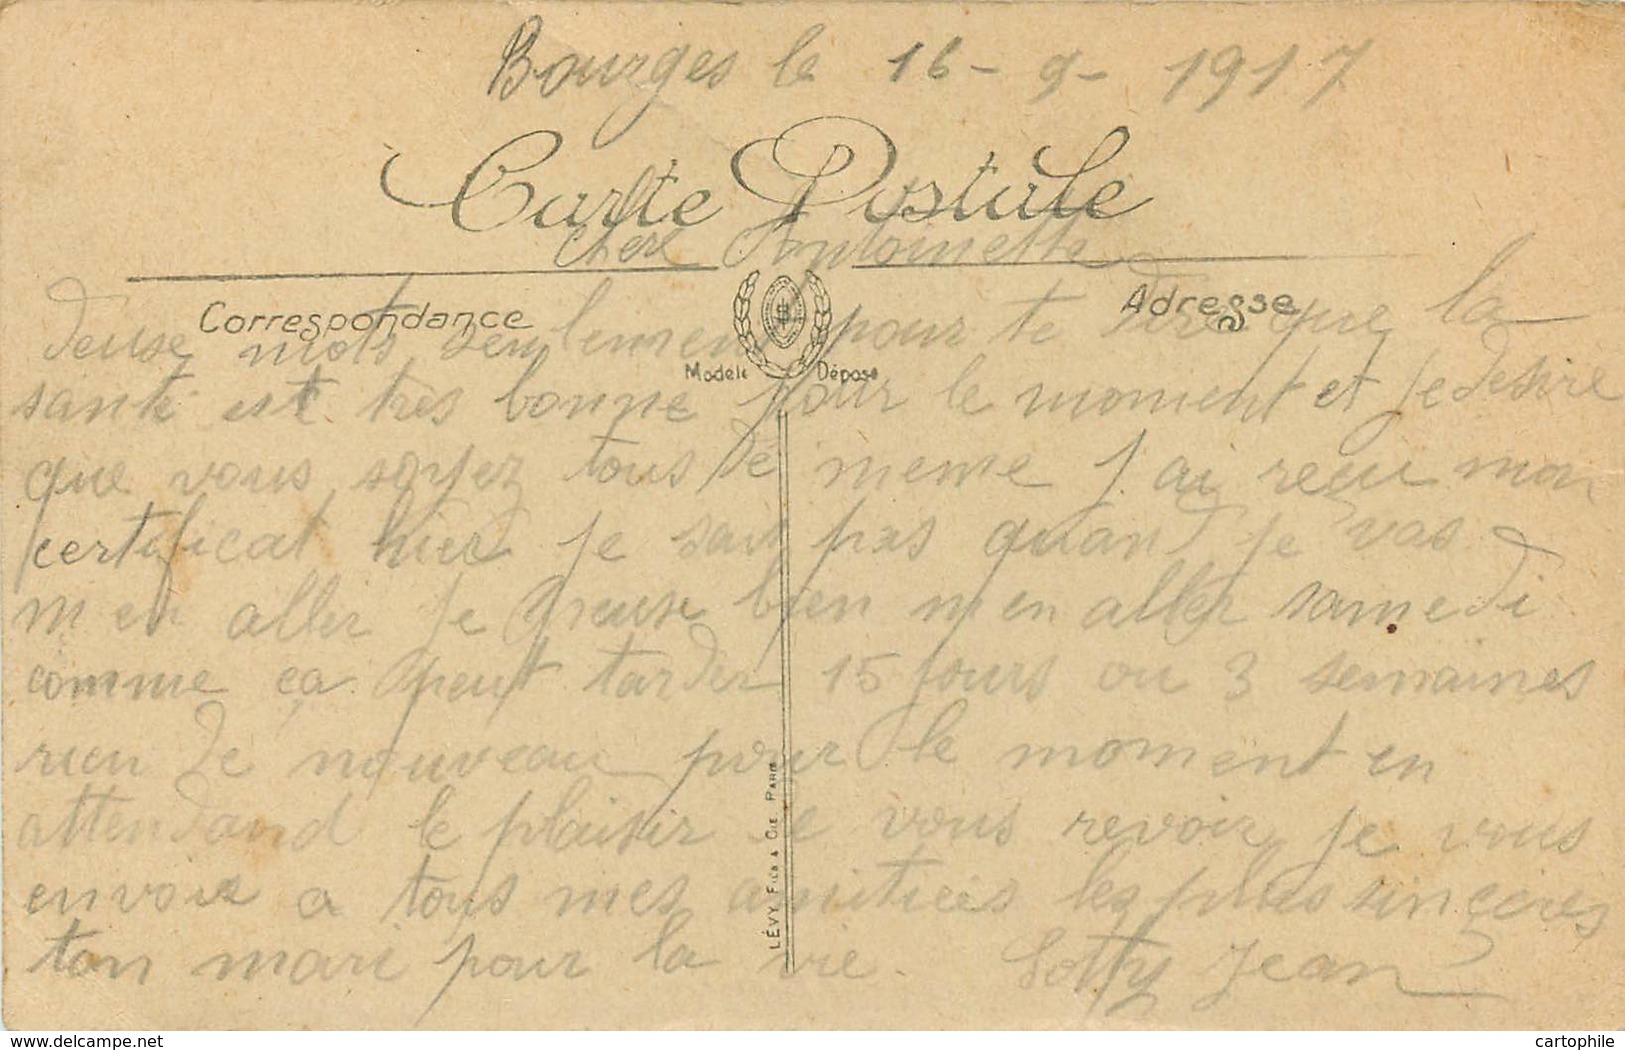 Bourges le 16-9-1917
Carte Postale
Chere Antoinette
Correspondance
Adresse
deuse mots seulement pour te dire que la
Modèle Déposé
santé est tres bonne pour le moment et je desire
que vous soyez tous de meme J'ai recu mon
certificat hier je sais pas quand je vas
m en aller je pense bien m en aller samedi
comme ça peut tarder 15 jours ou 3 semaines
rien de nouveau pour le moment en
attendand le plaisir de vous revoir je vous
envois a tous mes amitiées les plus sinceres
ton mari pour la vie. Jean
LÉVY FILS & CIE PARIS
www.delcampe.net
cartophile